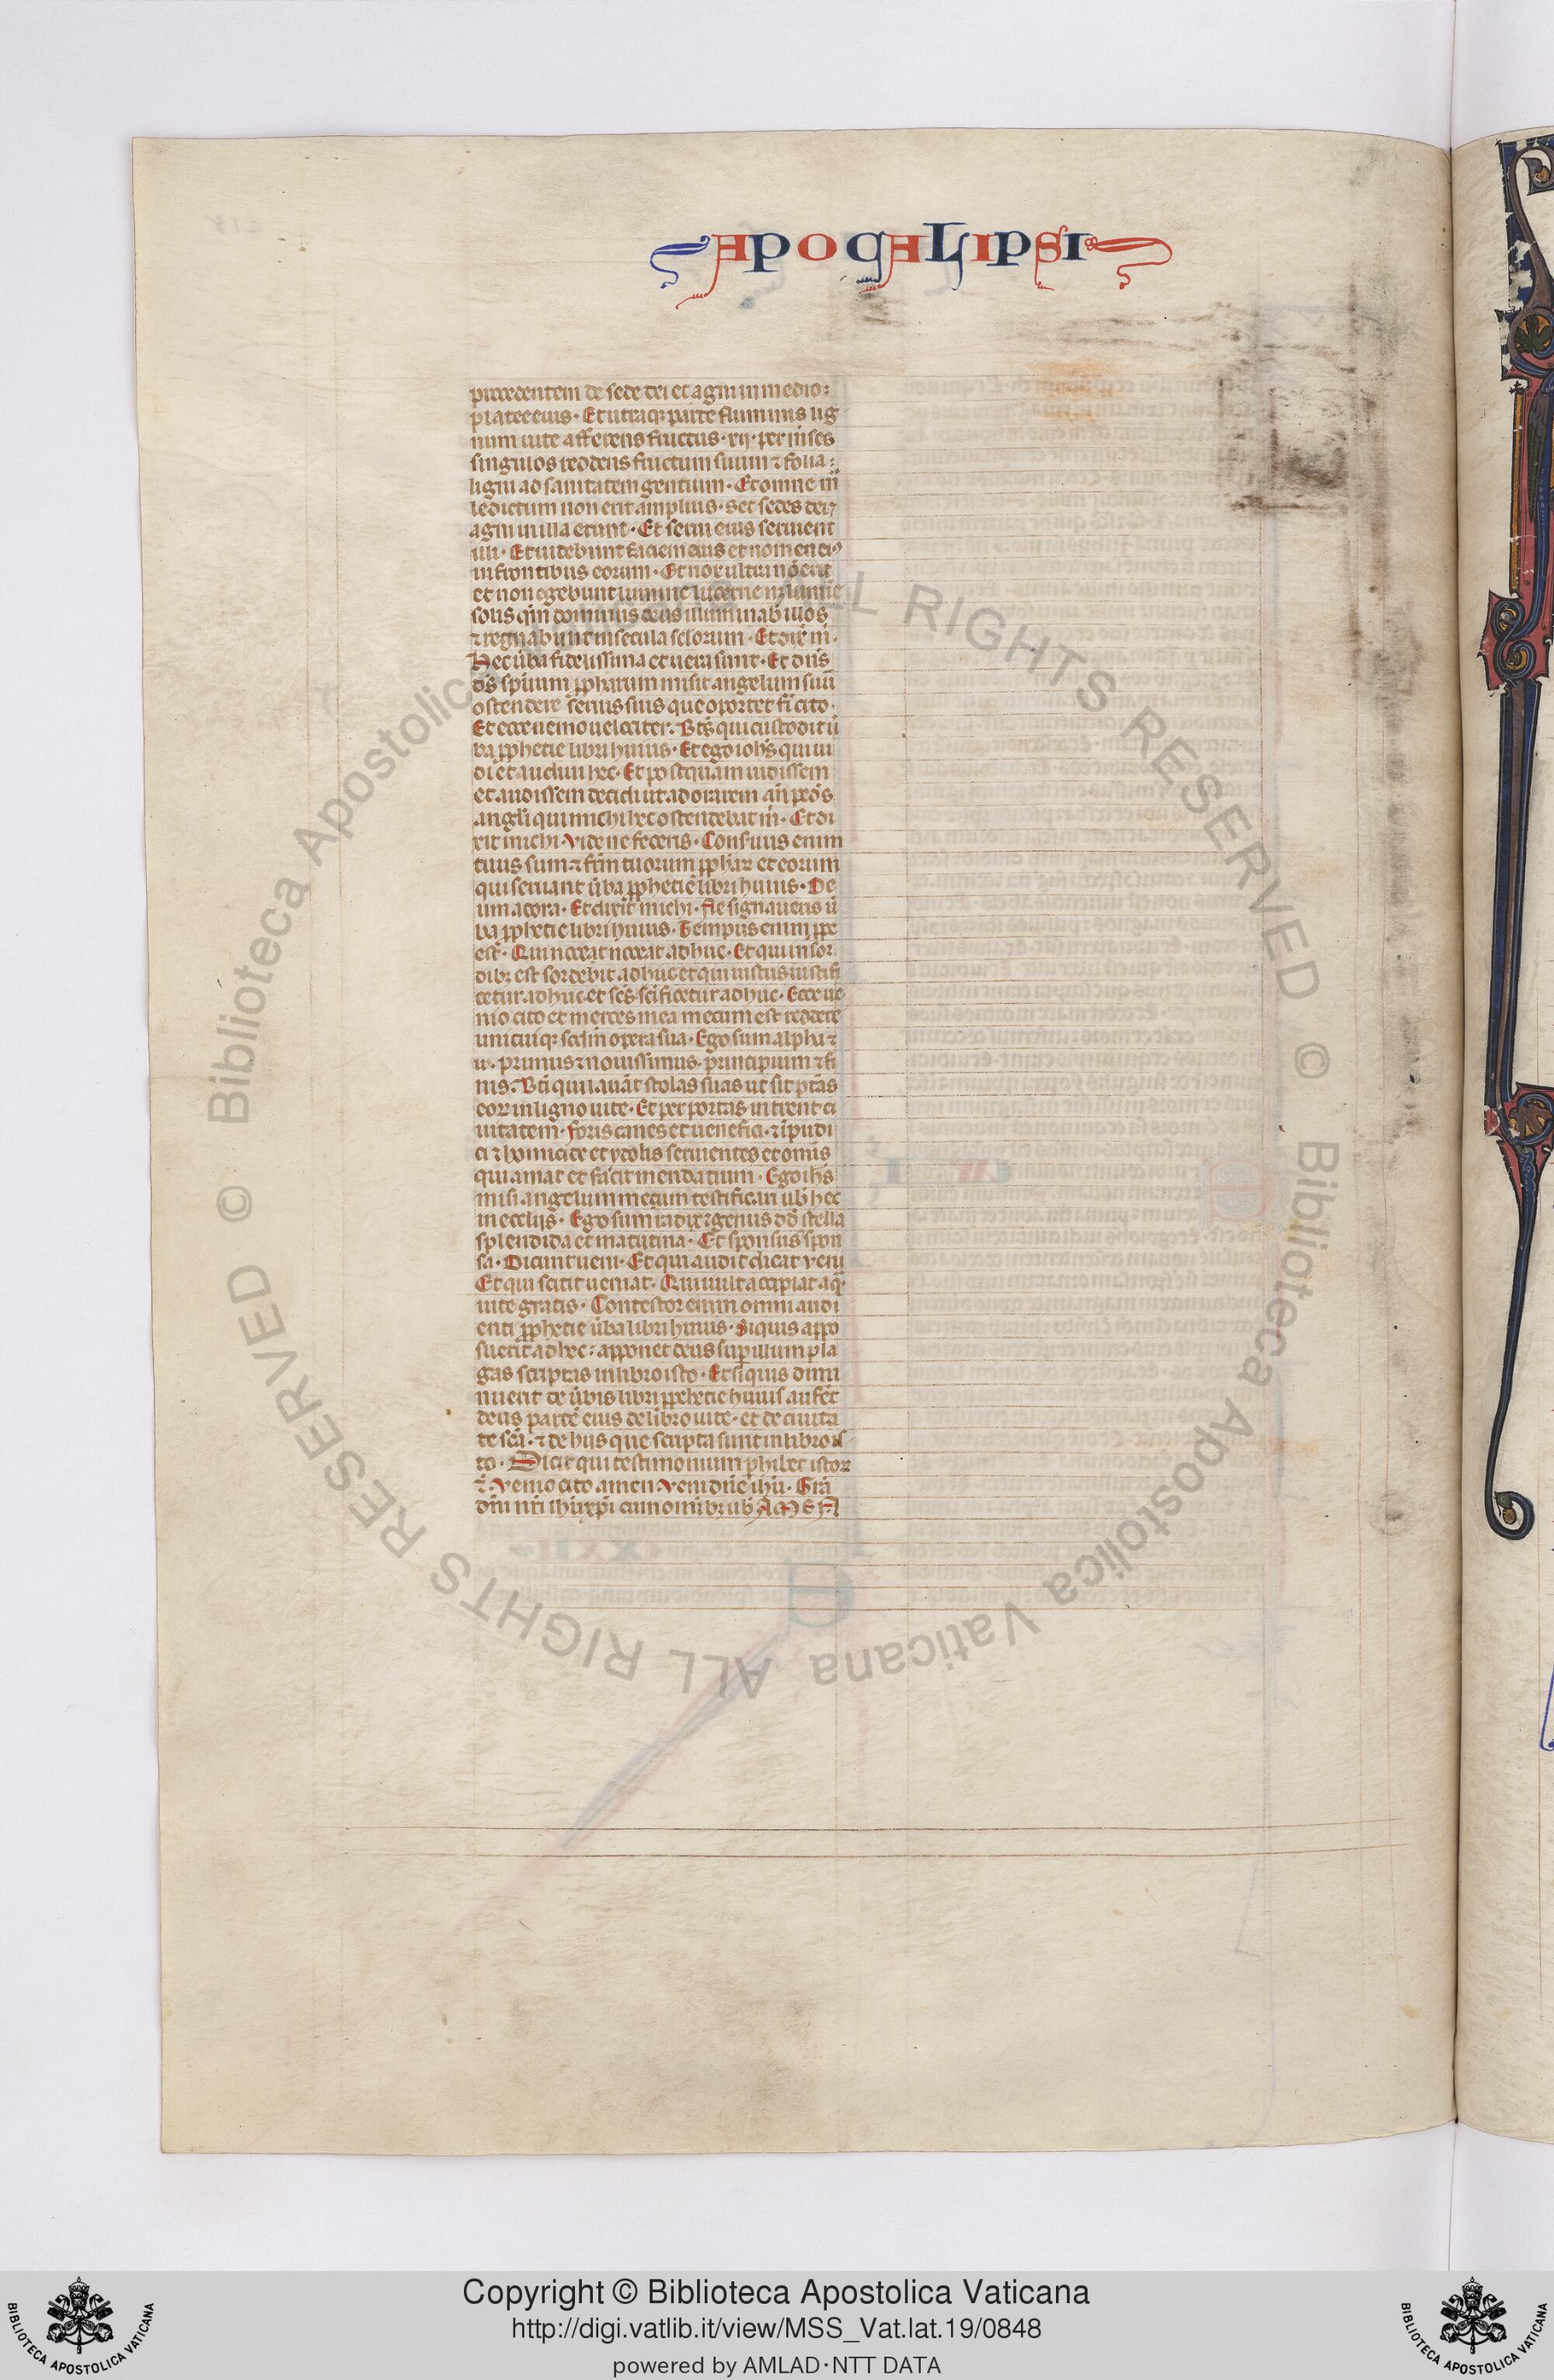 APOCALIPSI
procedentem de sede dei et agni in medio:
platee eius. Et utraq; parte fluminis lig
num uite afferens fructus. xij. per m̄ses
singulos reddens fructum suum ⁊ folia:
ligni ad sanitatem gentium. Et omne m̄
ledictum non erit amplius. Set sedes dei ⁊
agni in illa erunt. Et serui eius seruient
illi. Et uidebunt faciem eius et nomen ei᷒
in frontibus eorum. Et nox ultra nō erit
et non egebunt lumine lucerne neq; lumīe
solis qm̄ dominus deus illuminab illos
⁊ regnabunt in secula sclorum. Et dix̄ m̄.
Hec ūba fidelissima et uera sunt. Et dn̄s
ds̄ spūum ꝓphetarum misit angelum suū
ostendere seruis suis que oportet fi cito.
Et ecce uenio uelociter. Bt̄s qui custodit ū
ba ꝓphetie libri huius. Et ego ioh̄s qui ui
di et audiui hec. Et postquam uidissem
et audissem cecidi ut adorarem an̄ pedes
angl̄i qui michi hec ostendebat m̄. Et di
xit michi. Vide ne feceris. Conseruus enim
tuus sum ⁊ fr̄m tuorum ꝓphar̄ et eorum
qui seruant ūba ꝓphetie libri huius. De
um adora. Et dixit michi. Ne signaueris ū
ba ꝓphetie libri huius. Tempus enim ꝓpe
est. Qui nocet noceat adhuc. Et qui in sor
dib; est sordebit adhuc et qui iustus iustifi
cetur adhuc et sc̄s sc̄ificetur adhuc. Ecce ue
nio cito et merces mea mecum est reddere
unicuiq; scd̄m opera sua. Ego sum alpha ⁊
ω. primus ⁊ nouissimus. principium ⁊ fi
nis. Bt̄i qui lauāt stolas suas ut sit ptās
eor in ligno uite. Et per portas intrent ci
uitatem. foris canes et uenefici. ⁊ īpudi
ci ⁊ homicide et ydolis seruientes et omīs
qui amat et facit mendatium. Ego ih̄s
misi angelum meum testificari uob hec
in ecclijs. Ego sum radix ⁊ genus dd̄ stella
splendida et matutina. Et sponsus spon
sa. Dicunt ueni. Et qui audit dicat ueni
Et qui sitit ueniat. Qui uult accipiat aq̄
uite gratis. Contestor enim omni audi
enti ꝓphetie ūba libri huius. Siquis appo
suerit ad hec: apponet deus sup illum pla
gas scriptas in libro isto. Et siquis dimi
nuerit de ūbis libri ꝓphetie huius aufet
deus partē eius de libro uite. et de ciuita
te scā. ⁊ de hijs que scripta sunt in libro is
to. Dicit qui testimonium phibet istor
⁊. Venio cito amen. Veni dn̄e ih̄u. Grā
dn̄i nr̄i ih̄u xp̄i cum omīb; uob AMEN
© Biblioteca Apostolica Vaticana ALL RIGHTS RESERVED
© Biblioteca Apostolica Vaticana ALL RIGHTS RESERVED
Copyright © Biblioteca Apostolica Vaticana
http://digi.vatlib.it/view/MSS_Vat.lat.19/0848
powered by AMLAD·NTT DATA
BIBLIOTECA APOSTOLICA VATICANA
BIBLIOTECA APOSTOLICA VATICANA